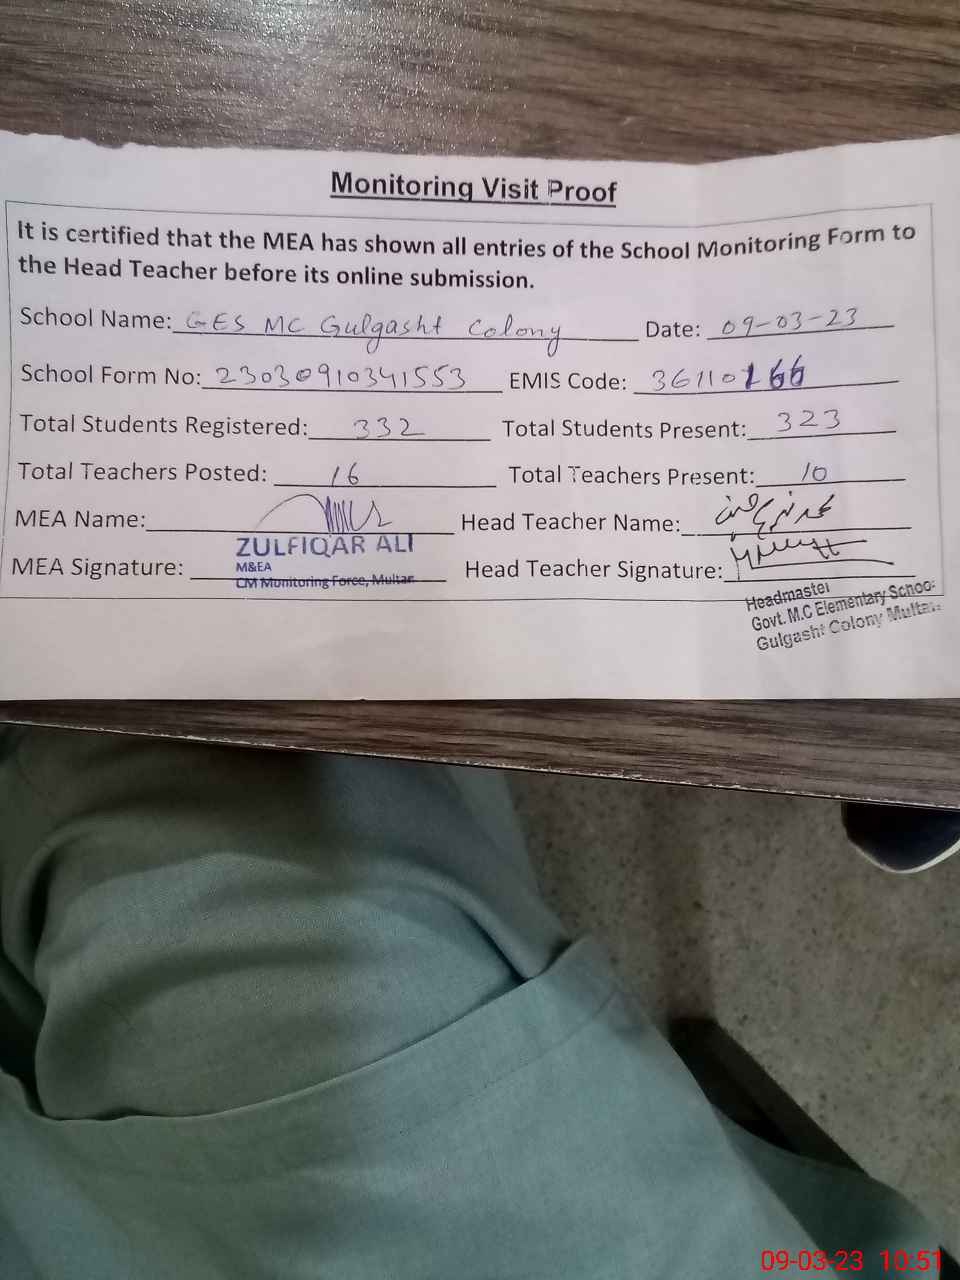 Monitoring Visit Proof
It is certified that the MEA has shown all entries of the School Monitoring Form to
the Head Teacher before its online submission.
School Name: GES MC Gulgasht Colony Date: 09-03-23
School Form No: 23030910341553 EMIS Code: 36110166
Total Students Registered: 332 Total Students Present: 323
Total Teachers Posted: 16 Total Teachers Present: 10
MEA Name: Head Teacher Name:
ZULFIQAR ALI
M&EA
MEA Signature: Head Teacher Signature:
CM Monitoring Force, Multan
Headmaster
Govt. M.C Elementary School
Gulgasht Colony Multan.
09-03-23 10:51